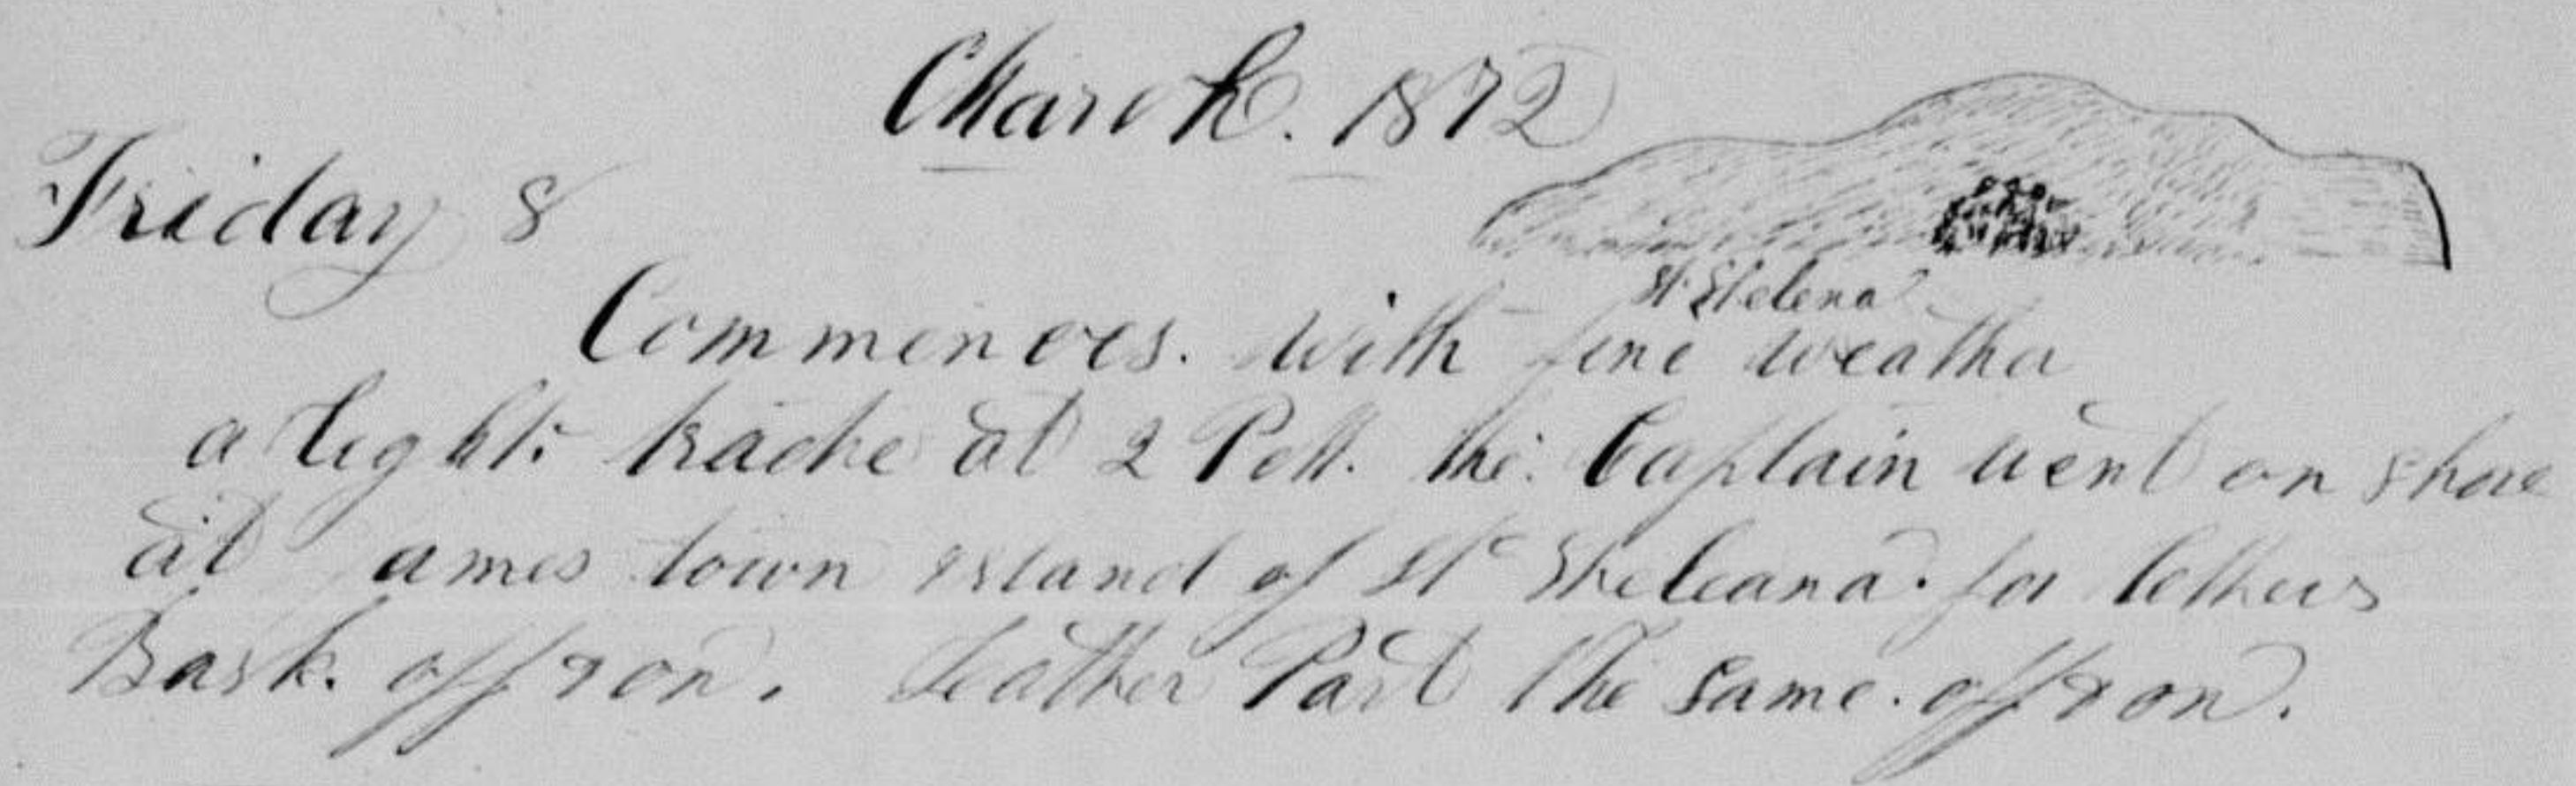 March. 1872
Friday 8
St Helena
Commences. with fine weather
a light. trade at 2 PM. the. Captain went on shore
at James town Island of St Heleana. for letters
Bark. off & on. Leather Part the same. off & on.